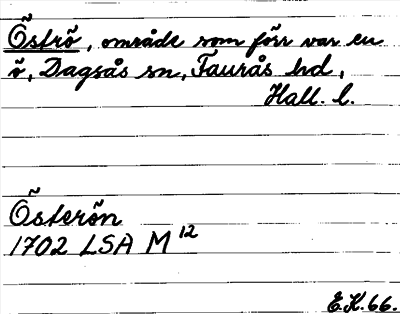 Öströ, område som förr var en
ö, Dagsås sn, Faurås hd,
Hall. l.
Österön
1702 LSA M 12
E.K. 66.